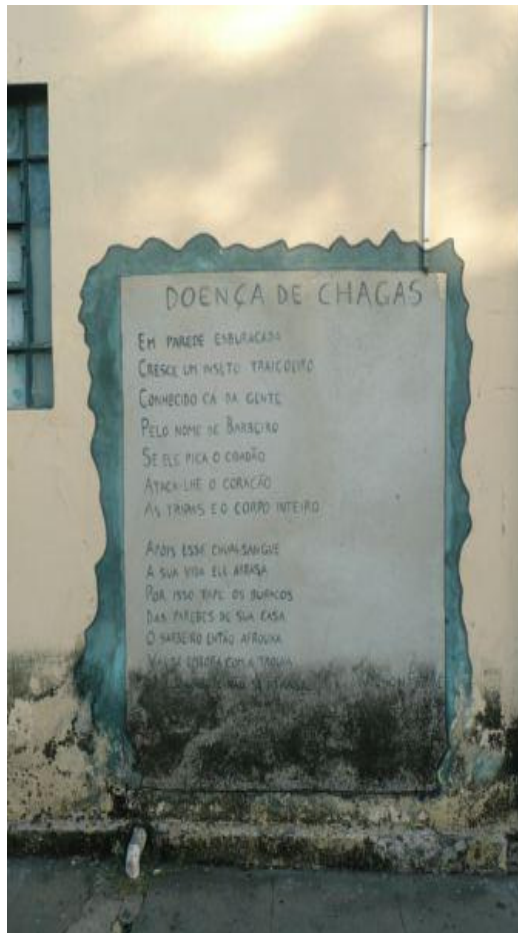 DOENÇA DE CHAGAS
EM PAREDE ESBURACADA
CRESCE UM INSETO TRAIÇOEIRO
CONHECIDO CÁ DA GENTE
PELO NOME DE BARBEIRO
SE ELE PICA O CIDADÃO
ATACA-LHE O CORAÇÃO
AS TRIPAS E O CORPO INTEIRO
APÓIS ESSE CHUPA SANGUE
A SUA VIDA ELE ARRASA
POR ISSO TAPE OS BURACOS
DAS PAREDES DE SUA CASA
O BARBEIRO ENTÃO AFROUXA
VAI-SE EMBORA COM A TROUXA
NÃO SE